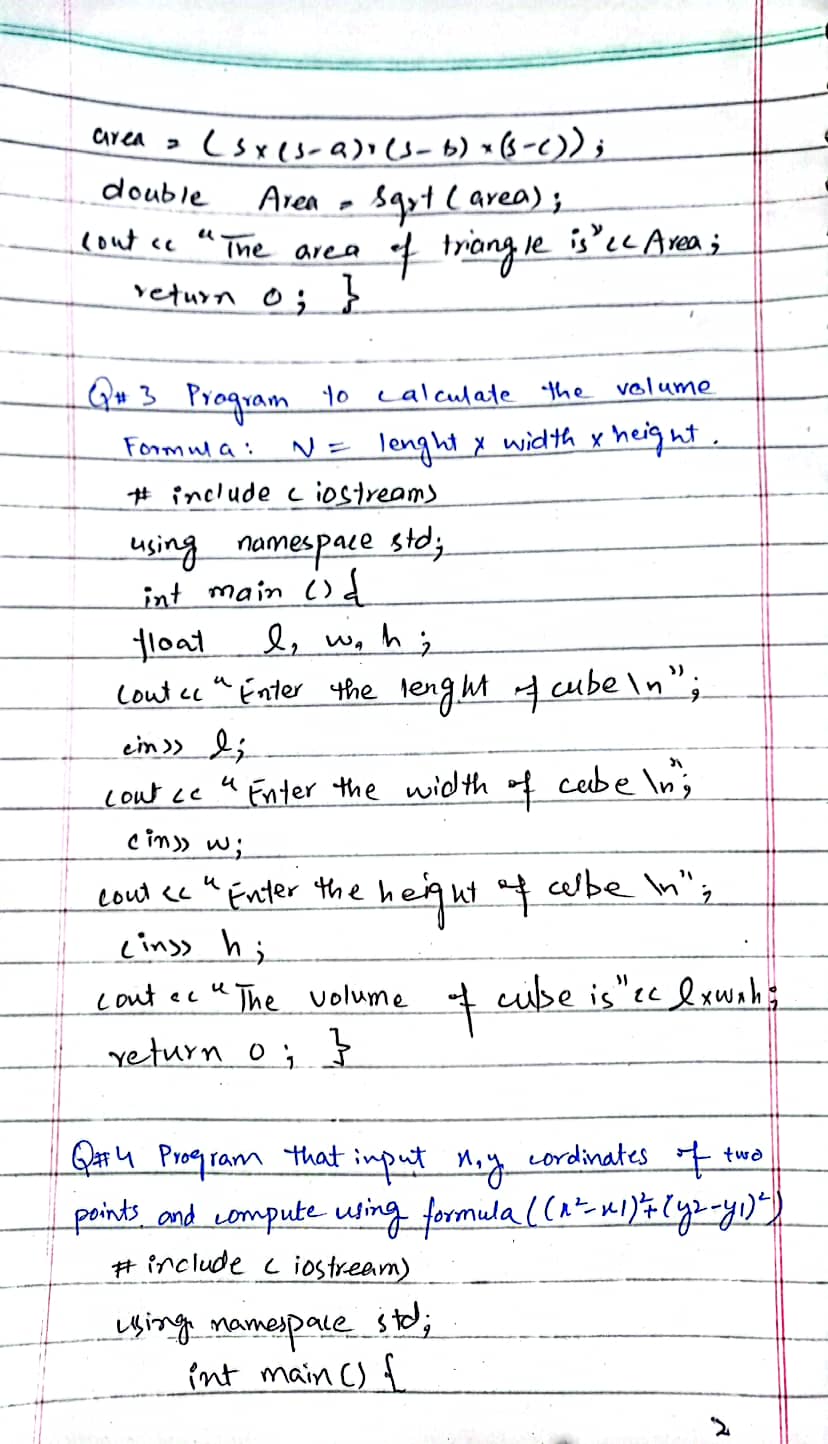 area = (s×(s-a)×(s-b)×(s-c));
double Area = sqrt(area);
cout << "The area of triangle is"<< Area;
return 0; }
Q#3 Program to calculate the volume
Formula: V = lenght × width × height.
# include <iostream>
using namespace std;
int main () {
float l, w, h;
cout << "Enter the lenght of cube \n";
cin>> l;
cout << "Enter the width of cube \n";
cin>> w;
cout << "Enter the height of cube \n";
cin>> h;
cout << "The volume of cube is"<< l×w×h;
return 0; }
Q#4 Program that input x,y cordinates of two
points and compute using formula ((x²-x1)²+(y2-y1)²)
# include <iostream>
using namespace std;
int main() {
2